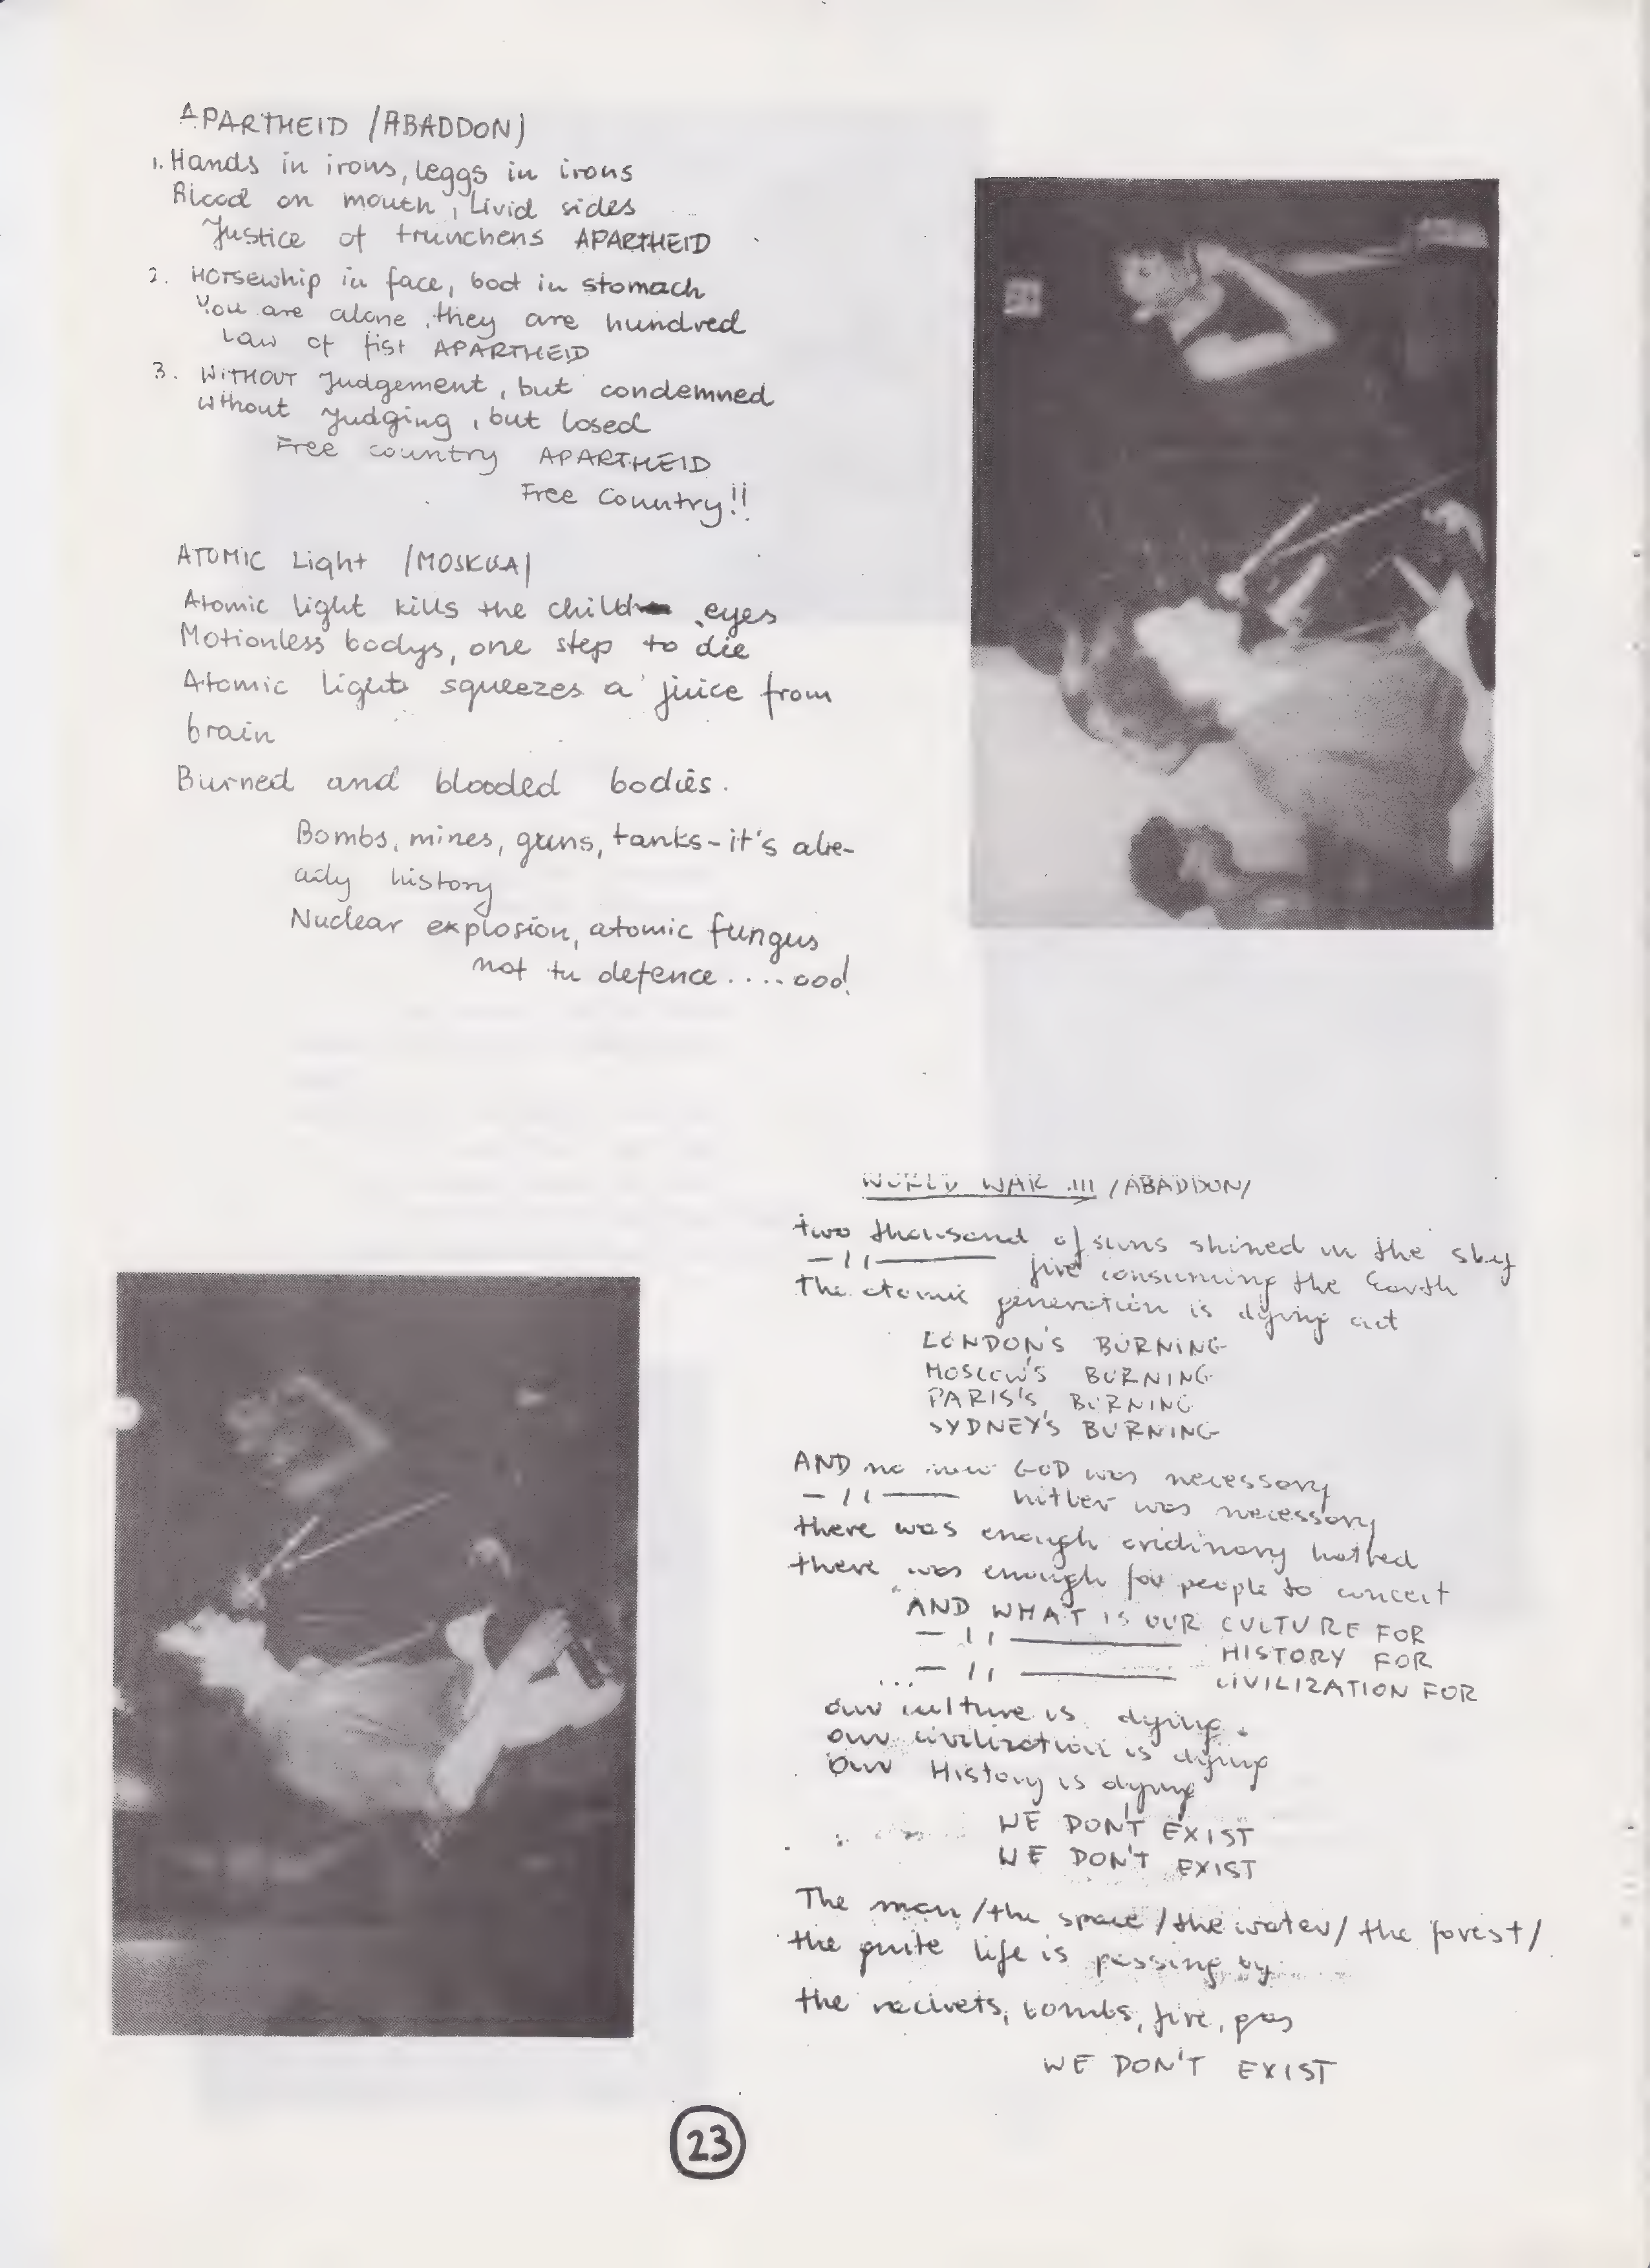 APARTHEID /ABADDON/
1. Hands in irons, leggs in irons
Blood on mouth, Livid sides
Justice of trunchens APARTHEID
2. Horsewhip in face, boot in stomach
You are alone, they are hundred
Law of fist APARTHEID
3. WITHOUT Judgement, but condemned
Without Judging, but losed
Free country APARTHEID
Free Country!!
ATOMIC Light /MOSKWA/
Atomic light kills the child eyes
Motionless bodys, one step to die
Atomic light squeezes a juice from
brain
Burned and blooded bodies.
Bombs, mines, guns, tanks - it's alre-
ady history
Nuclear explosion, atomic fungus
not tu defence....ooo!
WORLD WAR III /ABADDON/
two thousand of suns shined in the sky
— 11 ——— fire consuming the Earth
The atomic generation is dying out
LONDON'S BURNING
MOSCOW'S BURNING
PARIS'S BURNING
SYDNEY'S BURNING
AND no new GOD was necessory
— 11 —— hitler was necessory
there was enough oridinory hatred
there was enough for people to conceit
AND WHAT IS OUR CULTURE FOR
— 11 ——— HISTORY FOR
— 11 ——— CIVILIZATION FOR
our culture is dying.
our civilization is dying
Our History is dying
WE DON'T EXIST
WE DON'T EXIST
The man /the space /the water/ the forest/
the quite life is passing by
the rackets, bombs, fire, gas
WE DON'T EXIST
23